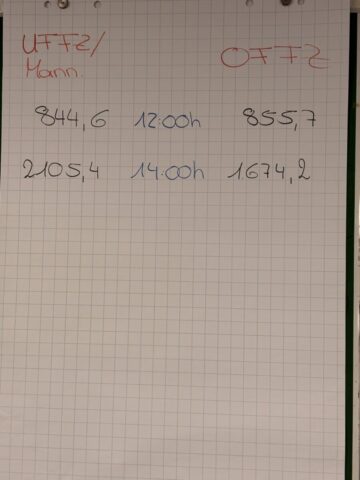 UFFZ/ OFFZ
Mann.
844,6 12:00h 855,7
2105,4 14:00h 1674,2